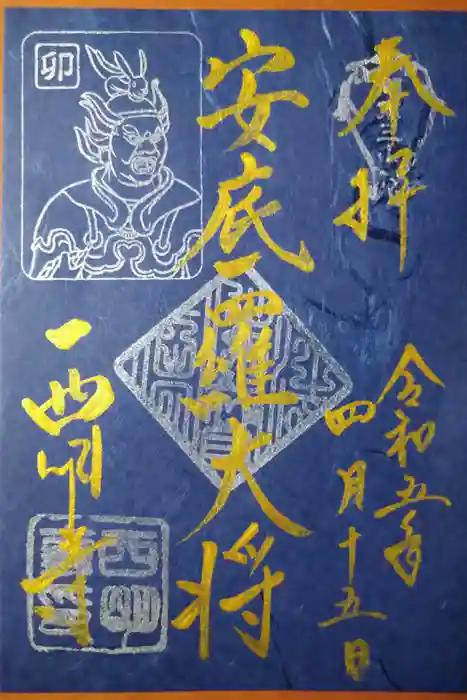 奉拝
令和五年
四月十五日
安底羅大将
卯
西明寺